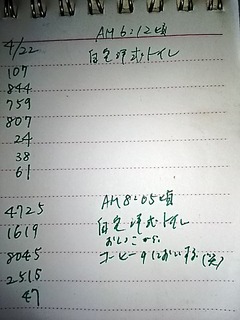 AM 6:12頃
4/22 白色洋式トイレ
107
844
759
807
24
38
61
AM 8:05頃
4725 白色洋式トイレ
1619 おしっこから
8045 コーヒーのにおいする(笑)
2515
47